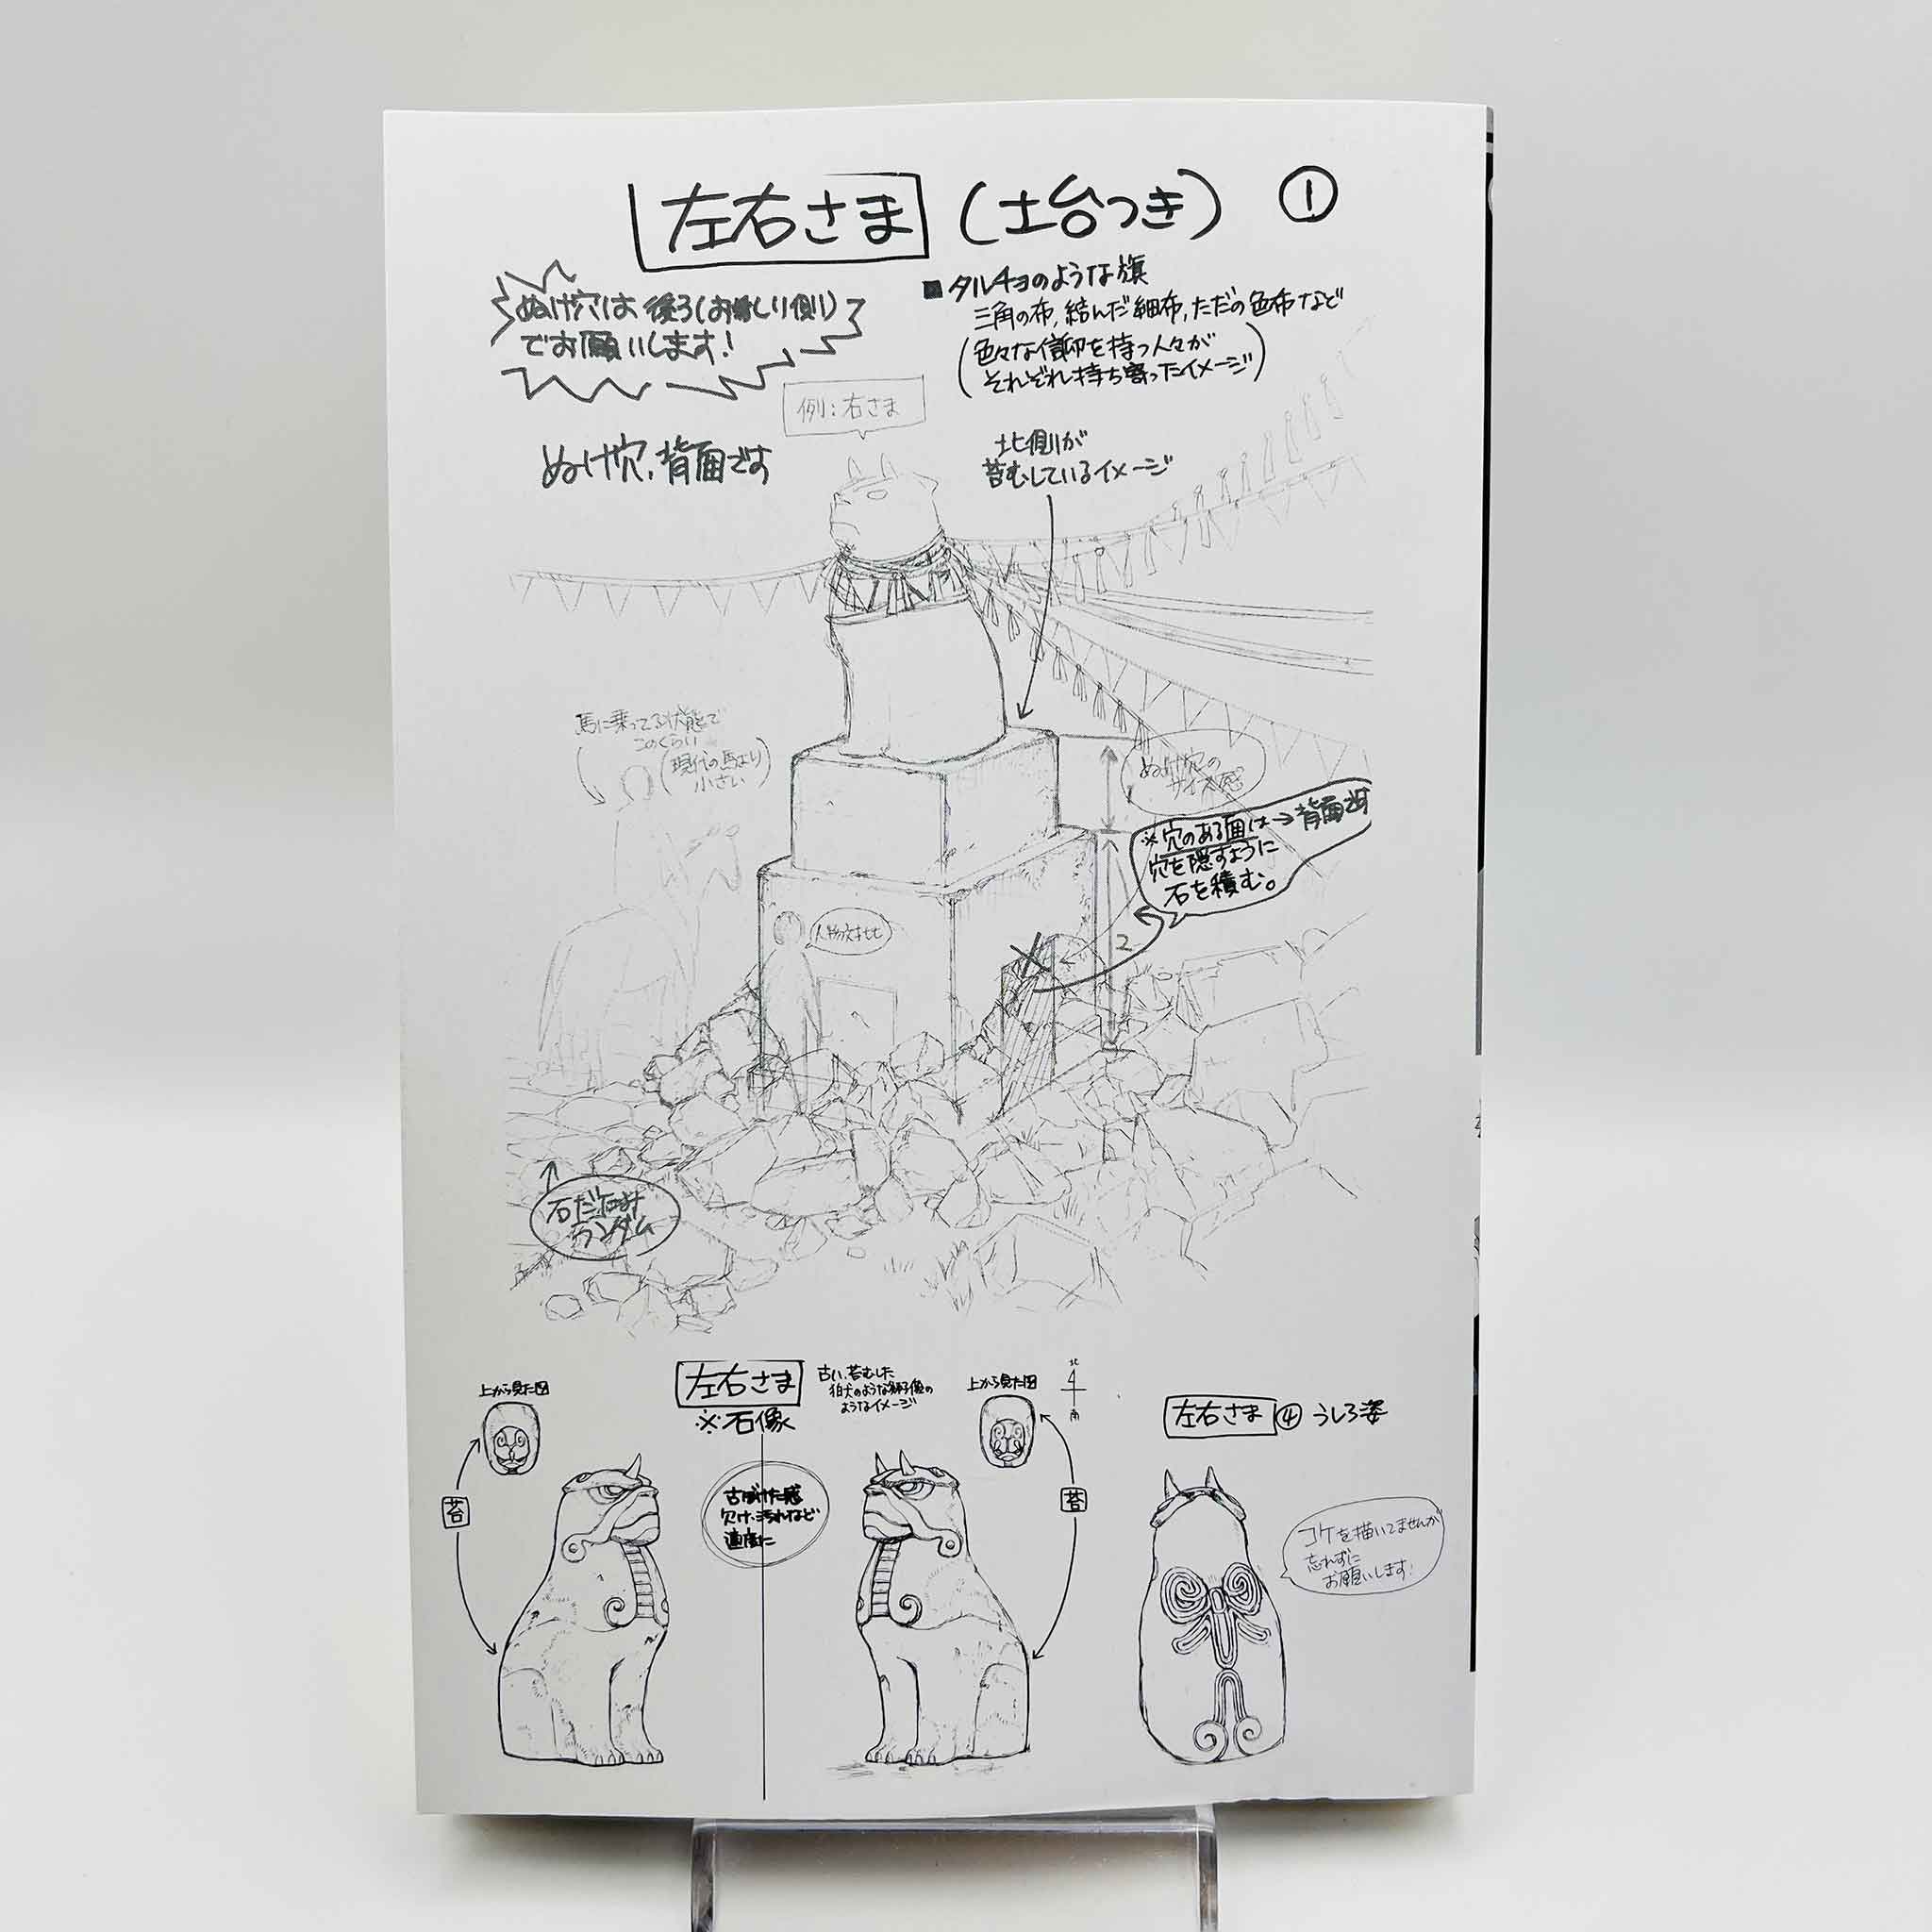 左右さま (土台つき) ①
ぬけ穴は後ろ(お尻り側)
でお願いします!
■タルチョのような旗
三角の布,結んだ細布,ただの色布など
(色々な信仰を持つ人々が
それぞれ持ち寄ったイメージ)
例:右さま
ぬけ穴,背面です
北側が
苔むしているイメージ
馬に乗ってる状態で
このくらい
(現代の馬より
小さい)
ぬけ穴の
サイズ感
※穴のある面は→背面です
穴を隠すように
石を積む。
人物対比
2
石だたみ
ランダム
上から見た図
苔
左右さま
※石像
古い、苔むした
狛犬のような獅子像の
ようなイメージ
古ぼけた感
欠け、汚れなど
適度に
上から見た図
北
南
苔
左右さま ④ うしろ姿
コケを描いてませんが
忘れずに
お願いします!